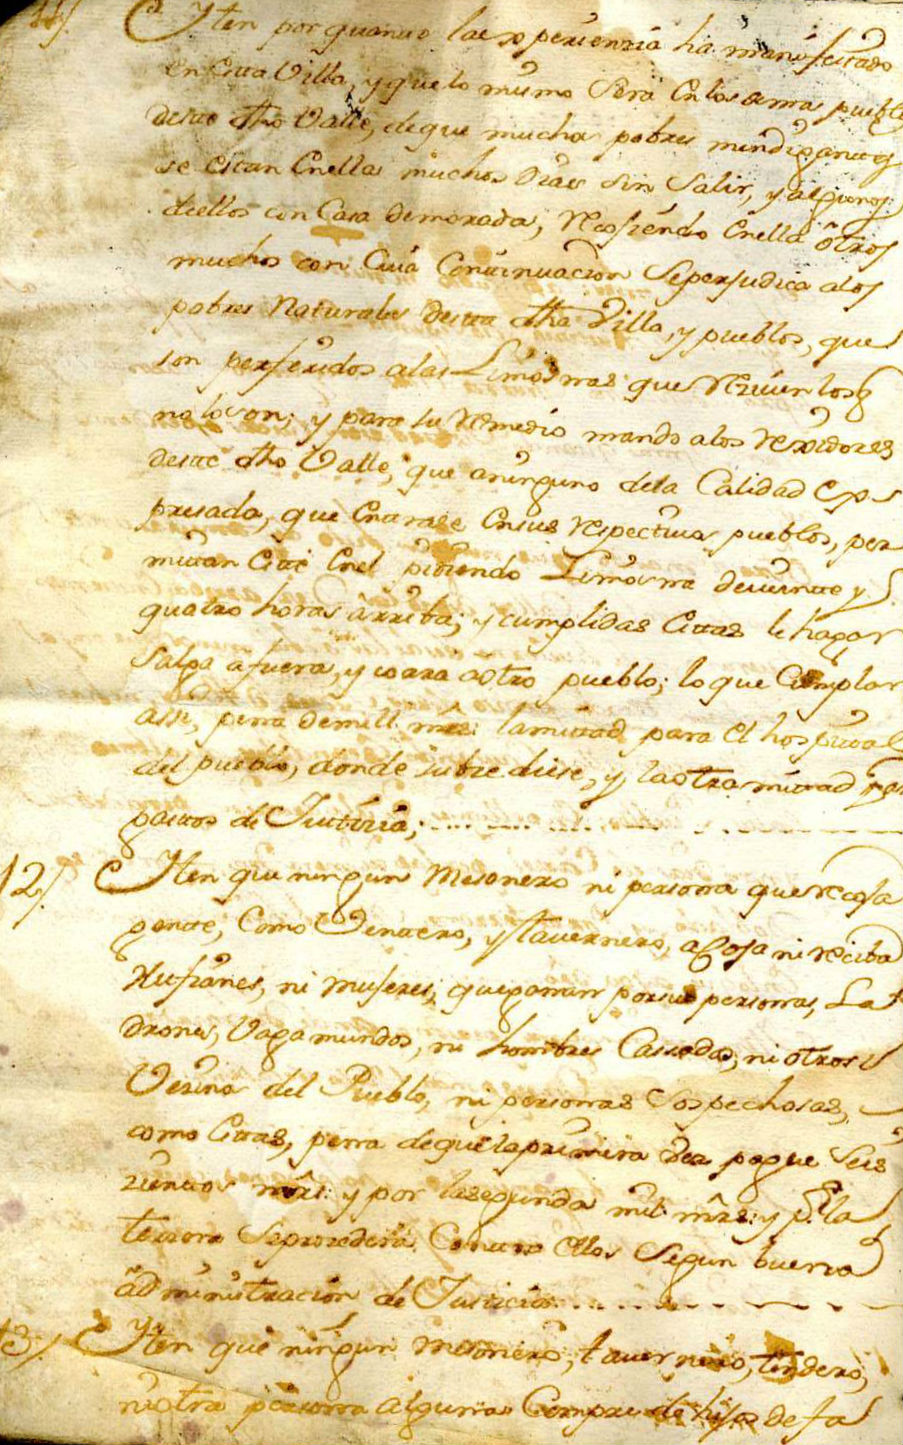 11/. Yten por quanto la experienzia ha manifestado
en esta Villa, y que lo mismo sera en los demas pueblos
deste dho Valle, de que muchos pobres mendigantes
se estan en ellas muchos dias sin salir, y algunos
de ellos con Casa de morada, recojiendo en ella ôtros
muchos con cuia Continuacion se perjudica a los
pobres Naturales desta dha Villa, y pueblos, que
son preferidos a las Limosnas que reziven los q
no lo son; y para su remedio mando a los rexidores
deste dho Valle, que a ninguno de la Calidad exps
presada, que entrase en sus respectivos pueblos, per
mitan esté en el pidiendo Limosna de veinte y
quatro horas àrriba; y cumplidas estas le hagan
salga afuera, y corra a otro pueblo; lo que Cumplan
assi, pena de mill mrs: la mitad para el hospital
del pueblo, donde subzediese, y la otra mitad para
gastos de Justizia;
12/. Yten que ningun Mesonero ni persona que recoja
gente, Como Ventero, y tavernero, acoja ni reciba
Rufianes, ni mujeres, que ganan por sus personas, La
drones, Vagamundos, ni hombres Casados, ni otros
Vezinos del Pueblo, ni personas sospechosas,
como estas, pena de que la primera vez pague seis
zientos mrs: y por la segunda mil mrs: y pr la
tercera se procederá Contra ellos segun buena
administracion de Justicia
13/. Yten que ningun mesonero, tavernero, tendero,
ni otra persona alguna Compre de hijos de fa